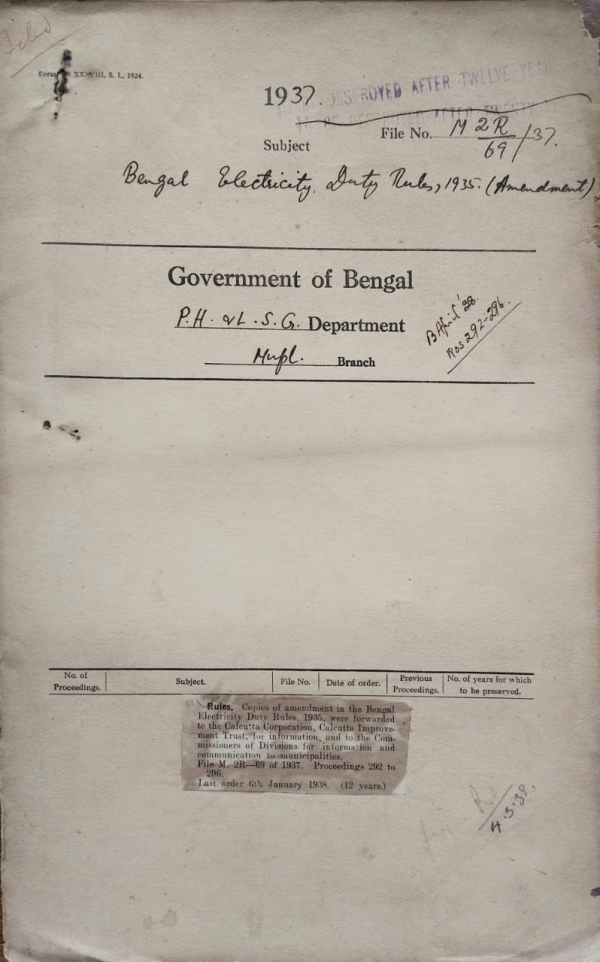 Filed
Form No. XXXVIII, S. I., 1924.
1937.
DESTROYED AFTER TWELVE YEARS
File No. M 2R/69/37.
Subject
Bengal Electricity Duty Rules, 1935. (Amendment)
Government of Bengal
P.H. & L.S.G. Department
Mupl. Branch
B April '38
Nos 292-296.
No. of Proceedings.
Subject.
File No.
Date of order.
Previous Proceedings.
No. of years for which to be preserved.
Rules. Copies of amendment in the Bengal
Electricity Duty Rules, 1935, were forwarded
to the Calcutta Corporation, Calcutta Improve-
ment Trust, for information, and to the Com-
missioners of Divisions for information and
communication to municipalities.
File M. 2R—69 of 1937. Proceedings 292 to
296.
Last order 6th January 1938. (12 years.)
4.3.38.